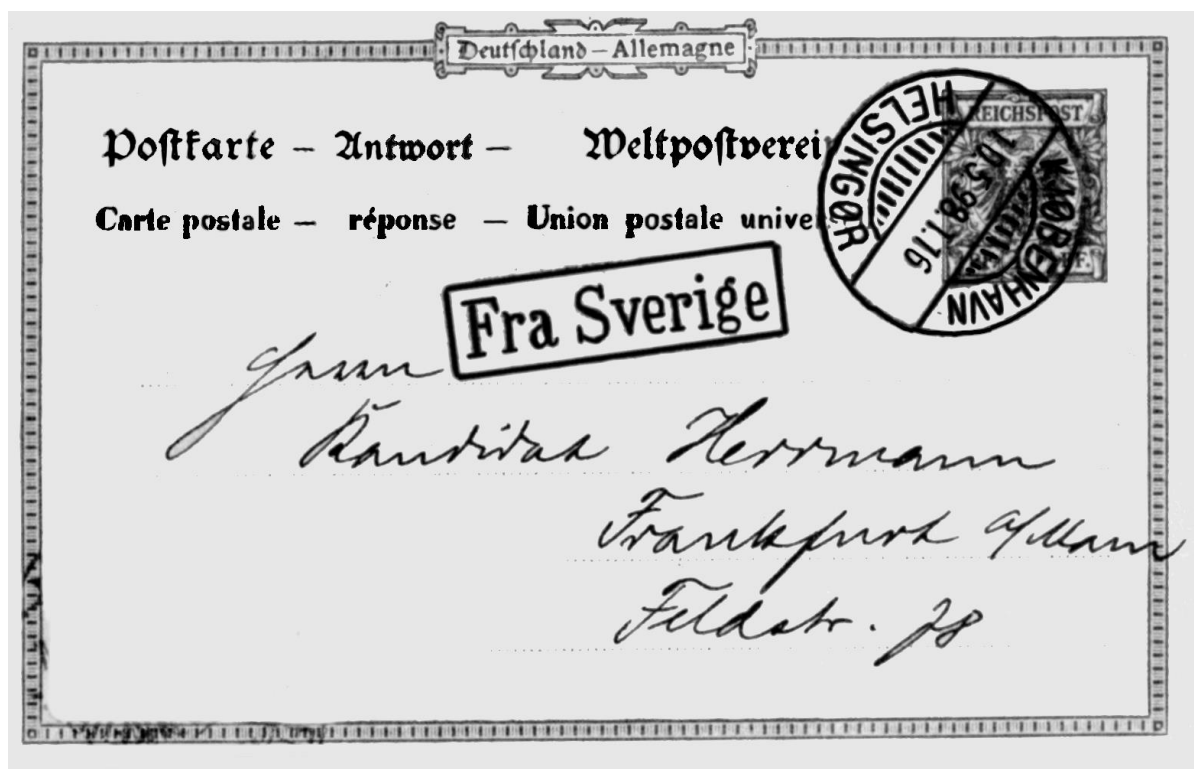 Deutschland – Allemagne
Postkarte – Antwort – Weltpostverei
Carte postale – réponse – Union postale unive
REICHSPOST
HELSINGØR
10.5.98.1.T.16
KJØBENHAVN
Fra Sverige
Herrn
Kandidat Herrmann
Frankfurt a/Main
Feldstr. 78